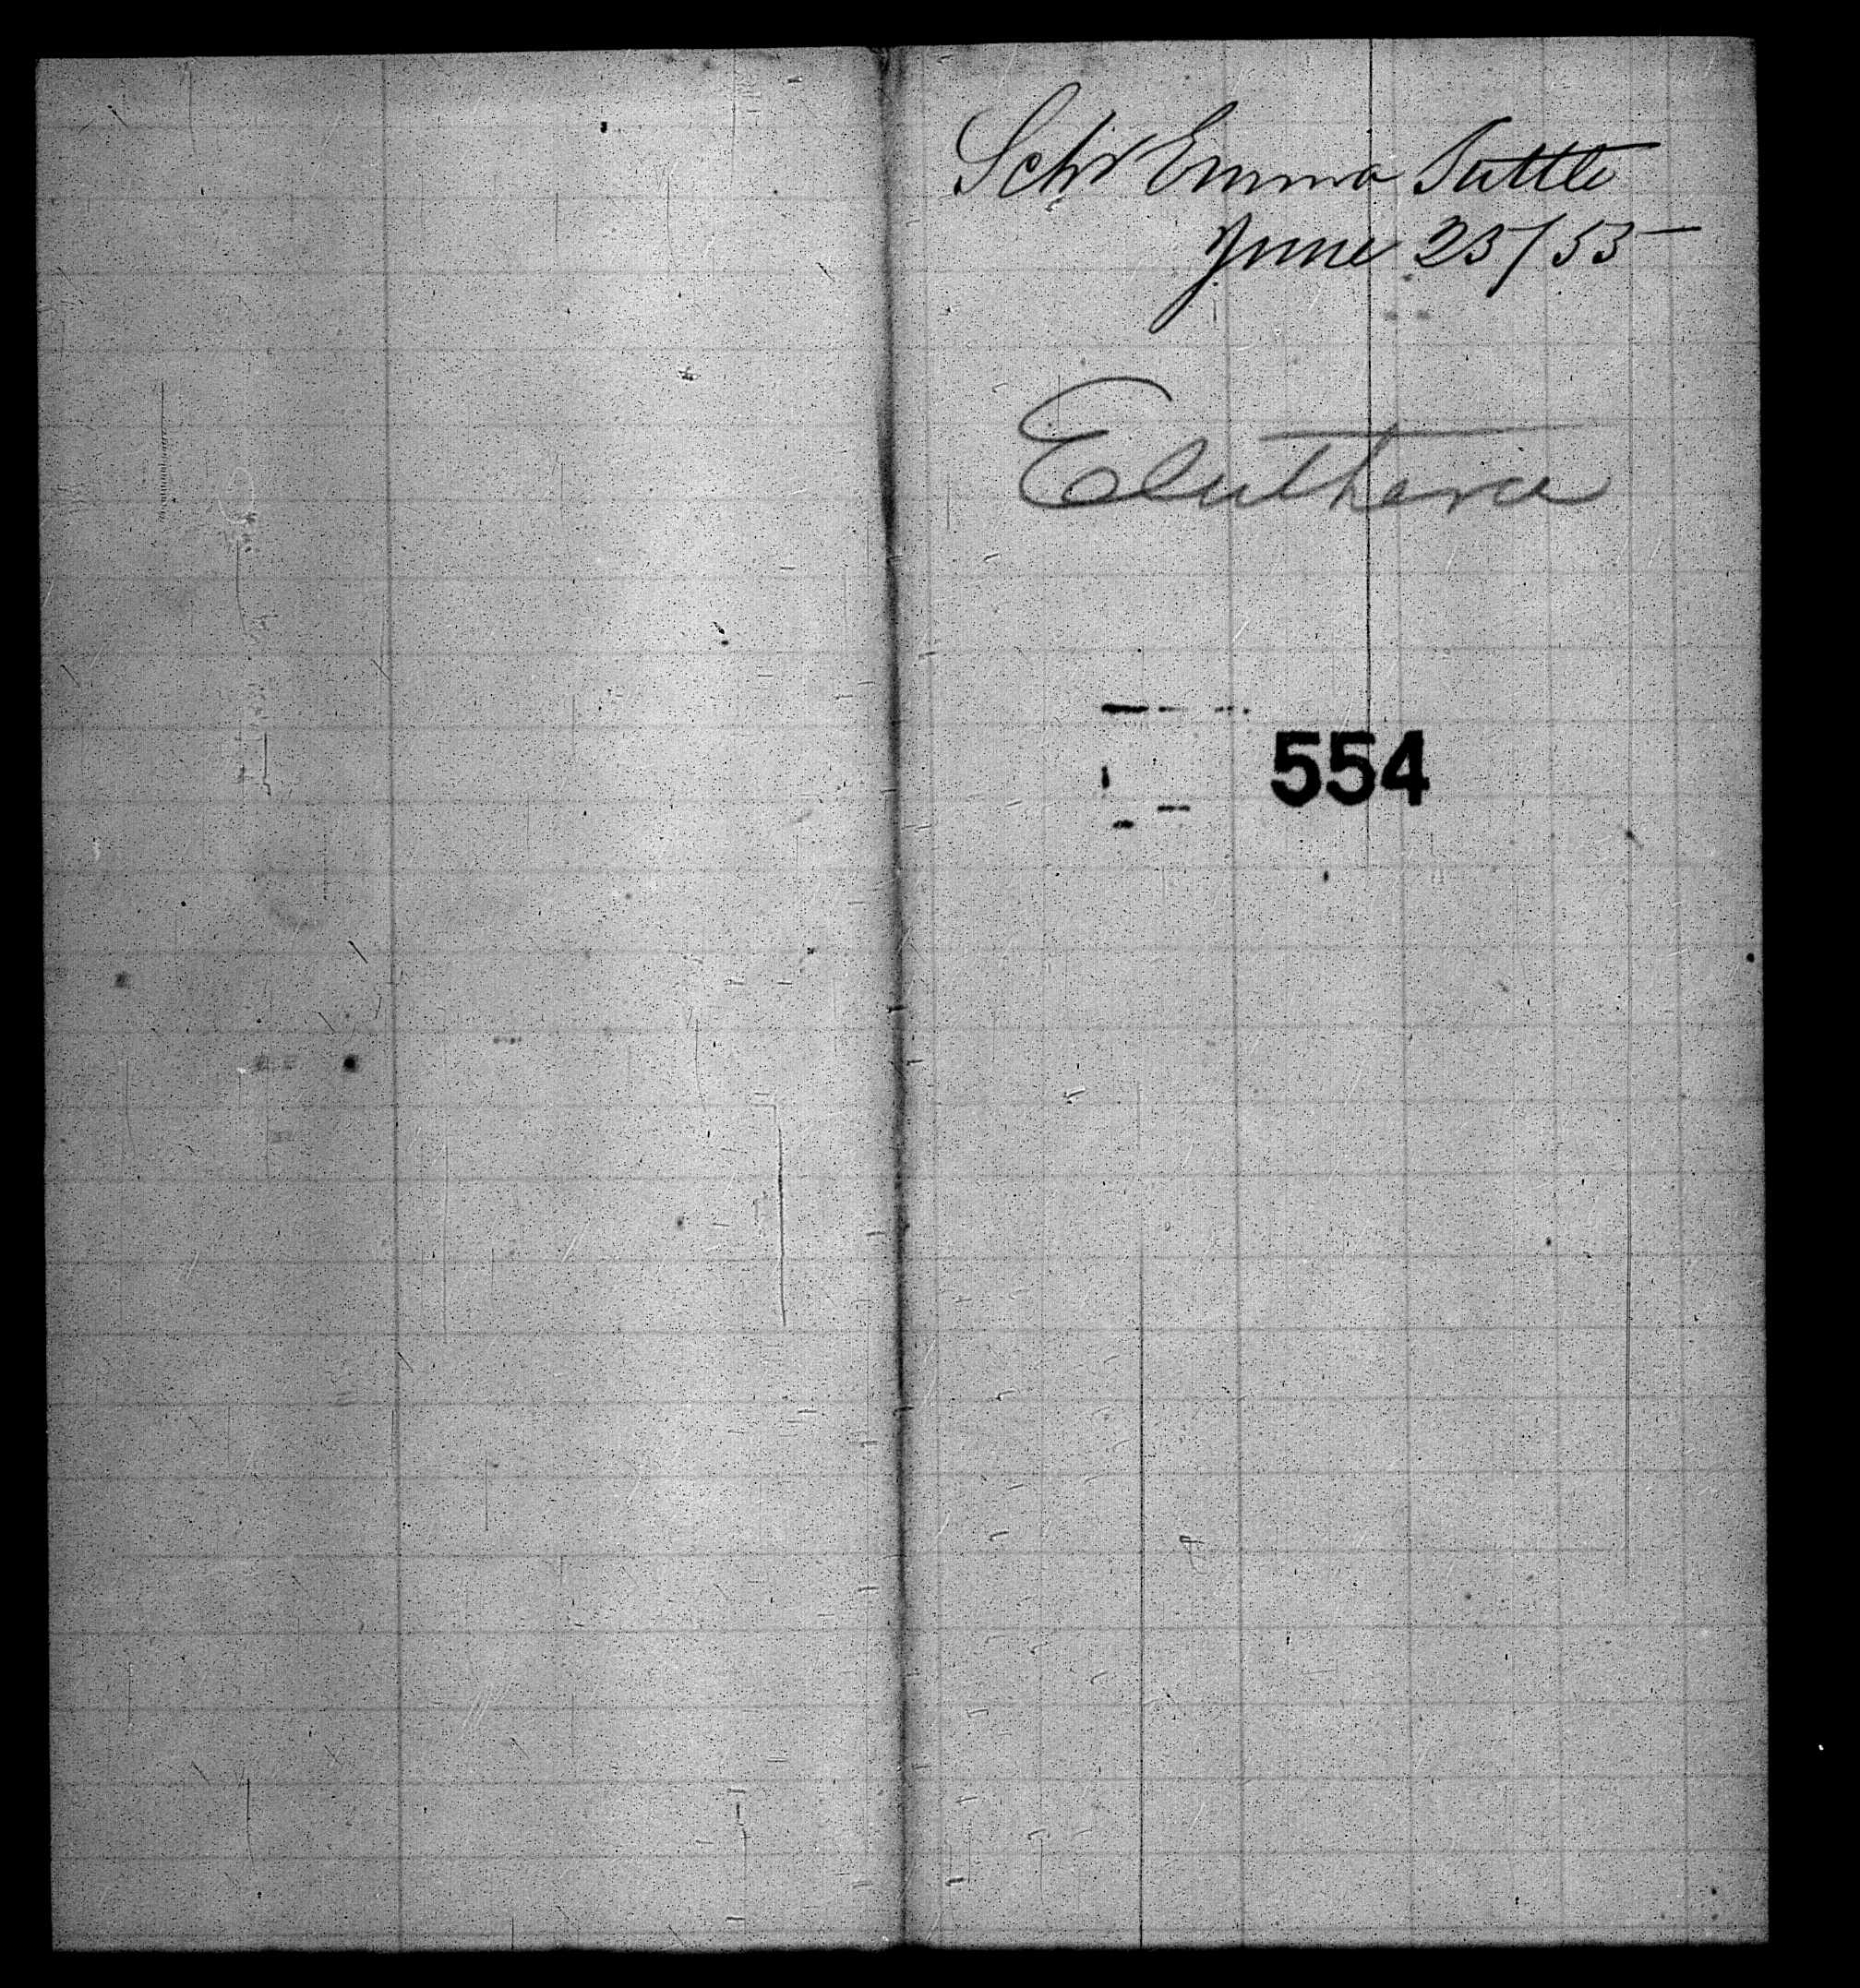 Schr Emma Tuttle
June 25/55
Eluthera
554